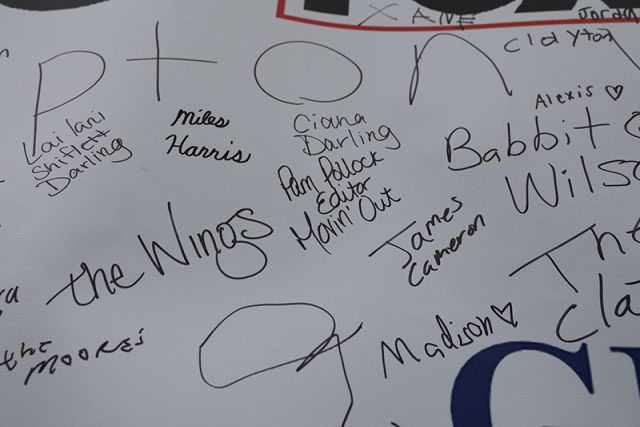 XANE
Jordan
Clayton
pton
Alexis ♡
Lailani
Shiflett
Darling
Miles
Harris
Ciana
Darling
Pam Pollock
Editor
Movin' Out
Babbit
Wilso
the Wings
James
Cameron
The
Cla
the MOORES
Madison ♡